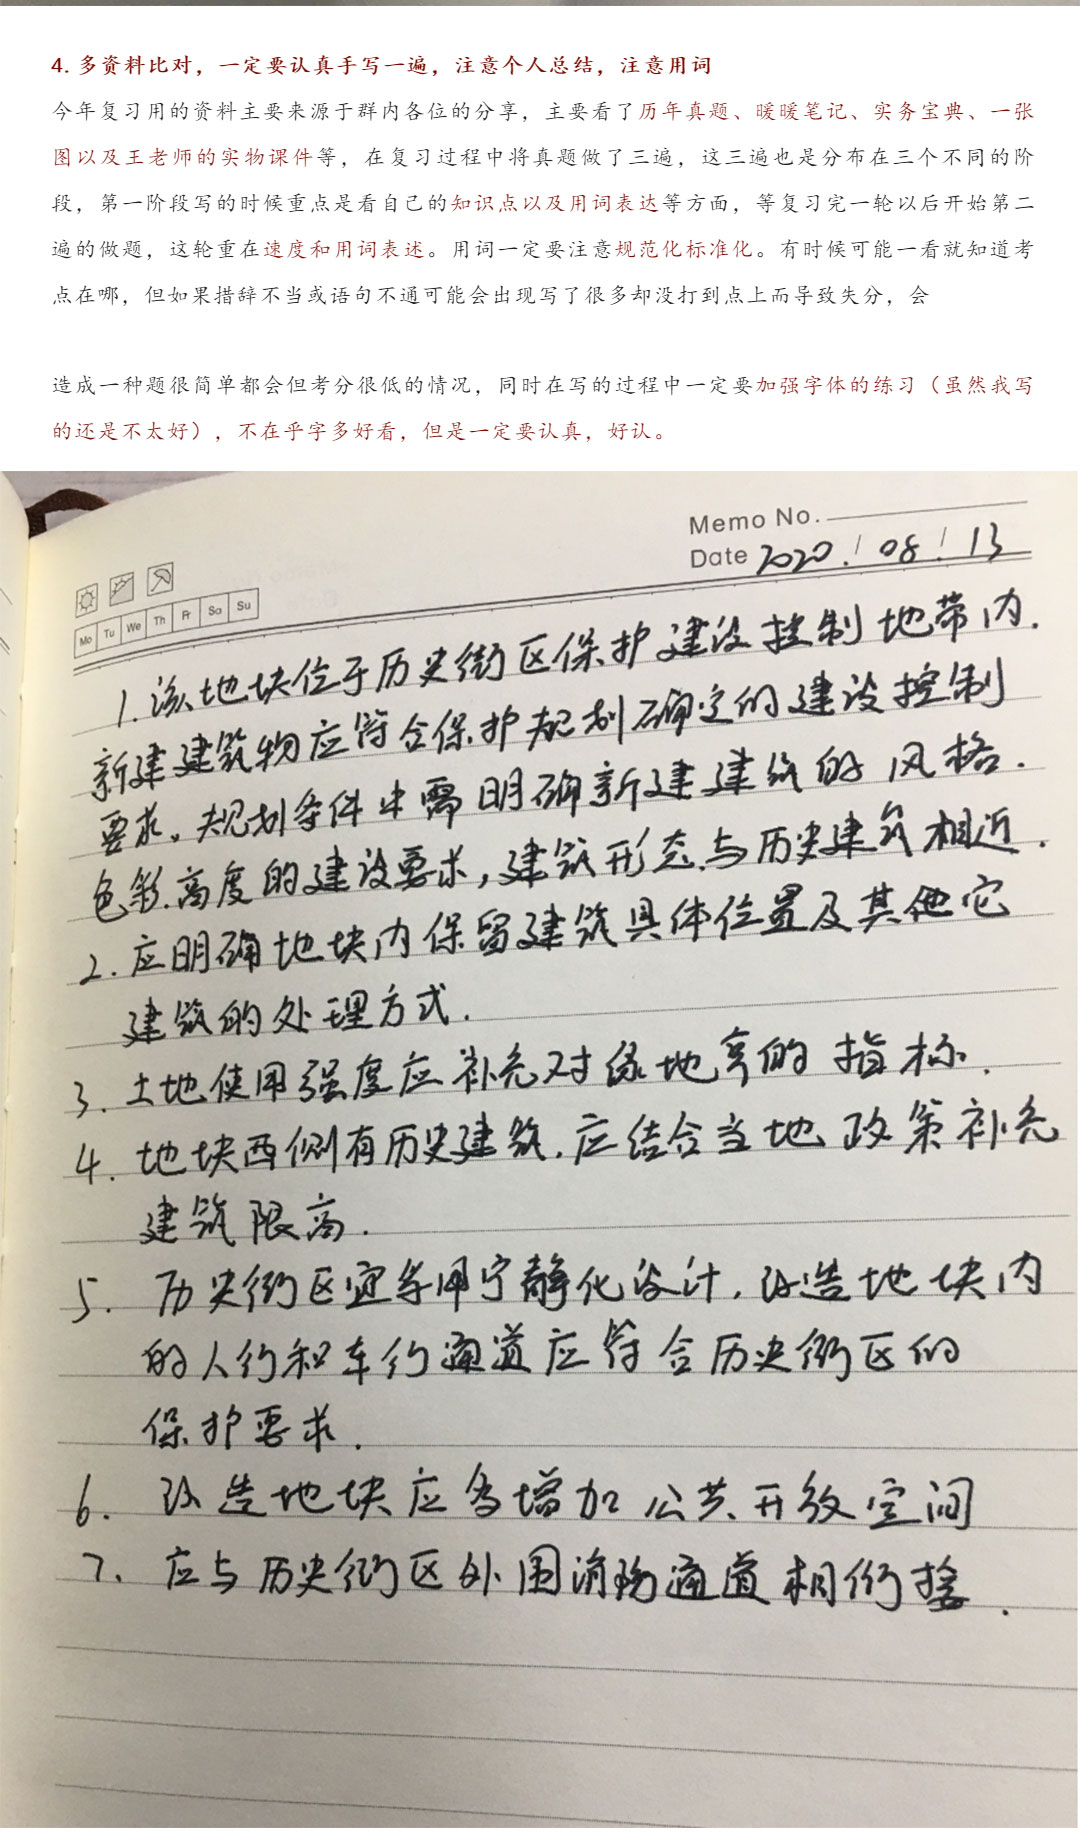 4. 多资料比对，一定要认真手写一遍，注意个人总结，注意用词
今年复习用的资料主要来源于群内各位的分享，主要看了历年真题、暖暖笔记、实务宝典、一张
图以及王老师的实物课件等，在复习过程中将真题做了三遍，这三遍也是分布在三个不同的阶
段，第一阶段写的时候重点是看自己的知识点以及用词表达等方面，等复习完一轮以后开始第二
遍的做题，这轮重在速度和用词表述。用词一定要注意规范化标准化。有时候可能一看就知道考
点在哪，但如果措辞不当或语句不通可能会出现写了很多却没打到点上而导致失分，会
造成一种题很简单都会但考分很低的情况，同时在写的过程中一定要加强字体的练习（虽然我写
的还是不太好），不在乎字多好看，但是一定要认真，好认。
Memo No.
Date 2020 / 08 / 13
Mo Tu We Th Fr Sa Su
1. 该地块位于历史街区保护建设控制地带内.
新建建筑物应符合保护规划确定的建设控制
要求。规划条件中需明确新建建筑的风格.
色彩.高度的建设要求,建筑形态与历史建筑相近.
2. 应明确地块内保留建筑具体位置及其他它
建筑的处理方式.
3. 土地使用强度应补充对绿地率的指标.
4. 地块西侧有历史建筑.应结合当地政策补充
建筑限高.
5. 历史街区宜采用宁静化设计.改造地块内
的人行和车行通道应符合历史街区的
保护要求.
6. 改造地块应当增加公共开放空间
7. 应与历史街区外围消防通道相衔接.